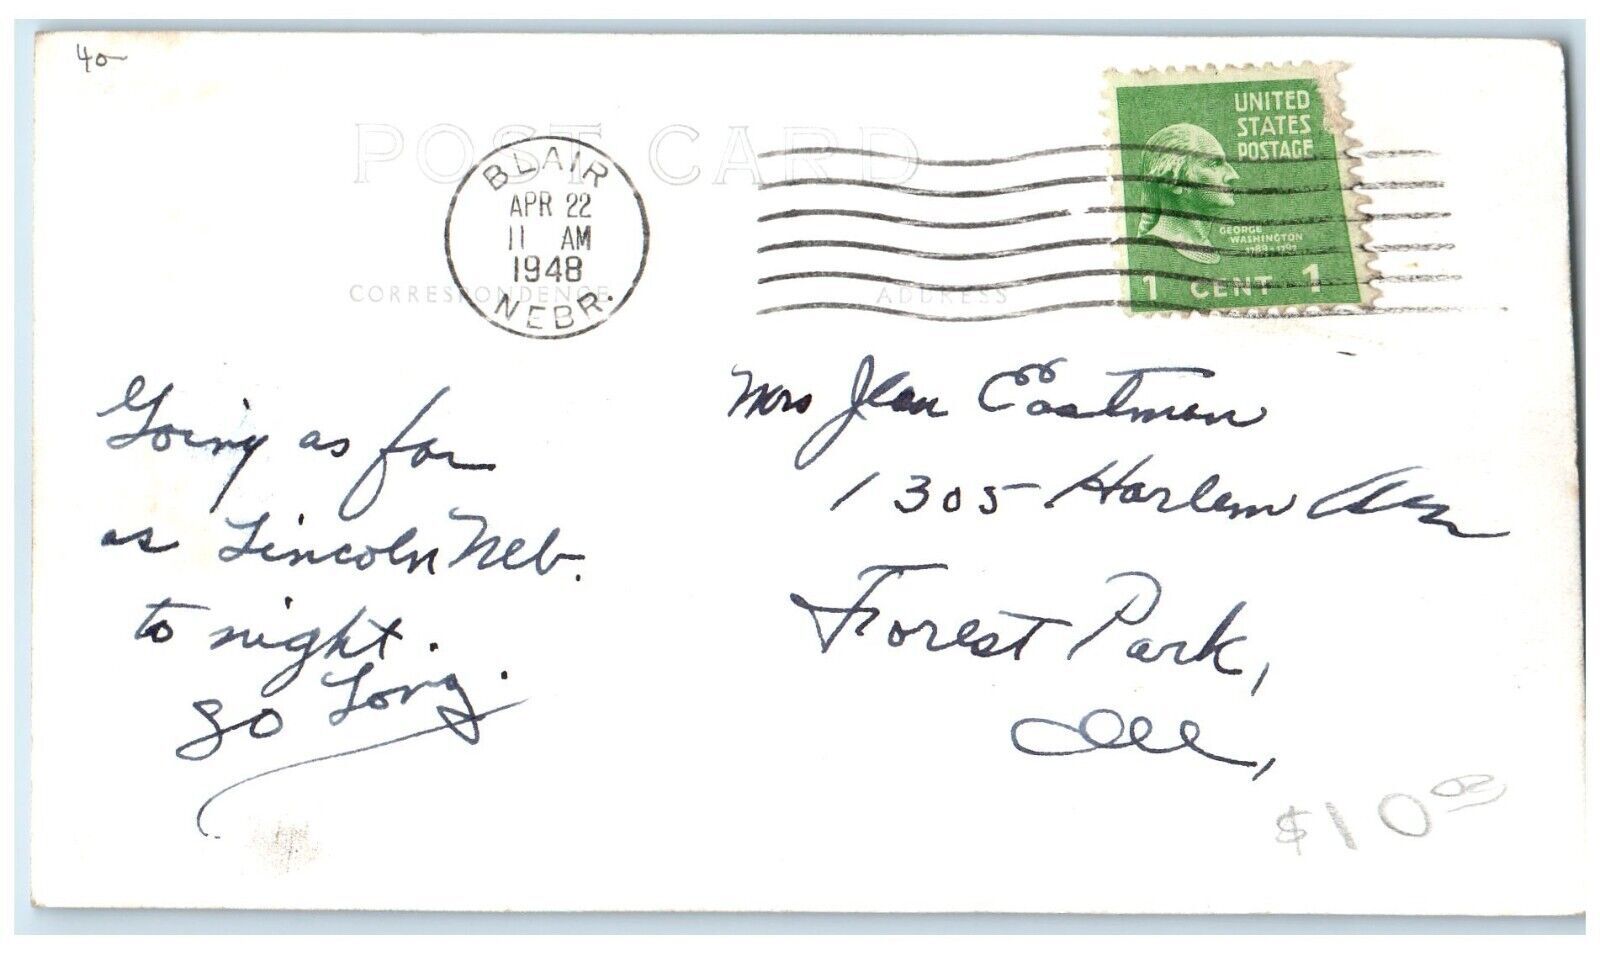 40-
POST CARD
BLAIR
APR 22
11 AM
1948
NEBR.
UNITED
STATES
POSTAGE
GEORGE
WASHINGTON
1789-1797
1 CENT 1
CORRESPONDENCE
ADDRESS
Going as far
as Lincoln Neb.
to night.
So Long.
Mrs Jean Eastman
1305 Harlem Ave
Forest Park,
Ill,
$10.00